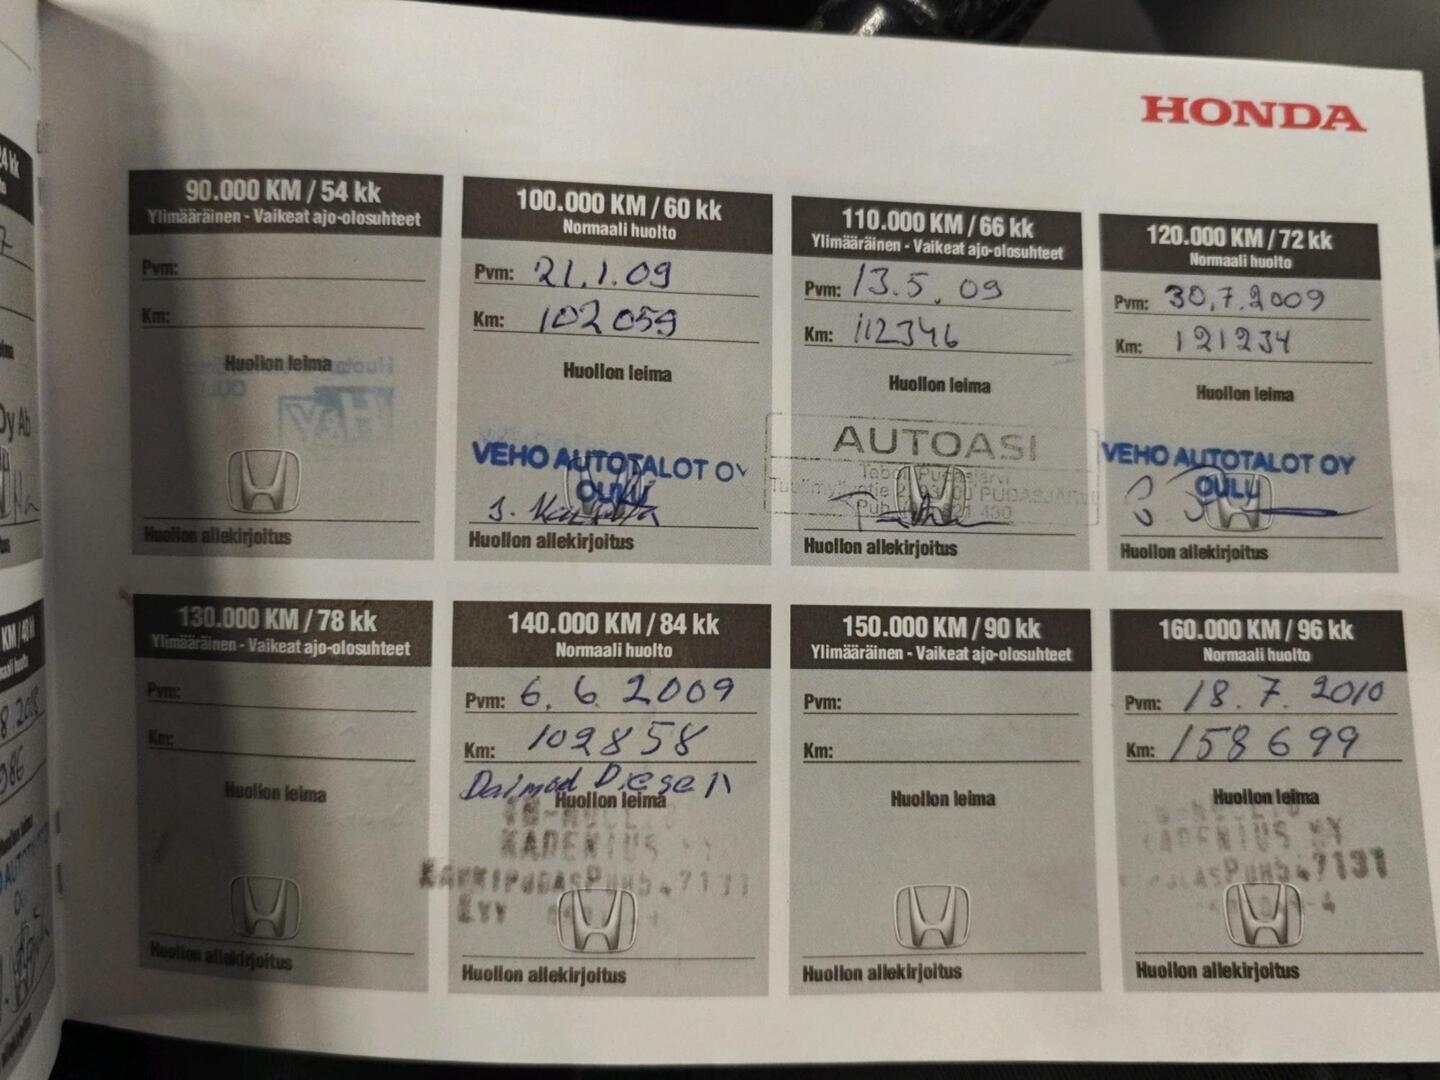 HONDA
90.000 KM / 54 kk
Ylimääräinen - Vaikeat ajo-olosuhteet
Pvm:
Km:
Huollon leima
Huollon allekirjoitus
100.000 KM / 60 kk
Normaali huolto
Pvm: 21.1.09
Km: 102059
Huollon leima
VEHO AUTOTALOT OY
OULU
Huollon allekirjoitus
110.000 KM / 66 kk
Ylimääräinen - Vaikeat ajo-olosuhteet
Pvm: 13.5.09
Km: 112346
Huollon leima
AUTOASI
Huollon allekirjoitus
120.000 KM / 72 kk
Normaali huolto
Pvm: 30.7.2009
Km: 121234
Huollon leima
VEHO AUTOTALOT OY
OULU
Huollon allekirjoitus
130.000 KM / 78 kk
Ylimääräinen - Vaikeat ajo-olosuhteet
Pvm:
Km:
Huollon leima
Huollon allekirjoitus
140.000 KM / 84 kk
Normaali huolto
Pvm: 6.6.2009
Km: 109858
Huollon leima
KADENIUS
Huollon allekirjoitus
150.000 KM / 90 kk
Ylimääräinen - Vaikeat ajo-olosuhteet
Pvm:
Km:
Huollon leima
Huollon allekirjoitus
160.000 KM / 96 kk
Normaali huolto
Pvm: 18.7.2010
Km: 158699
Huollon leima
Huollon allekirjoitus